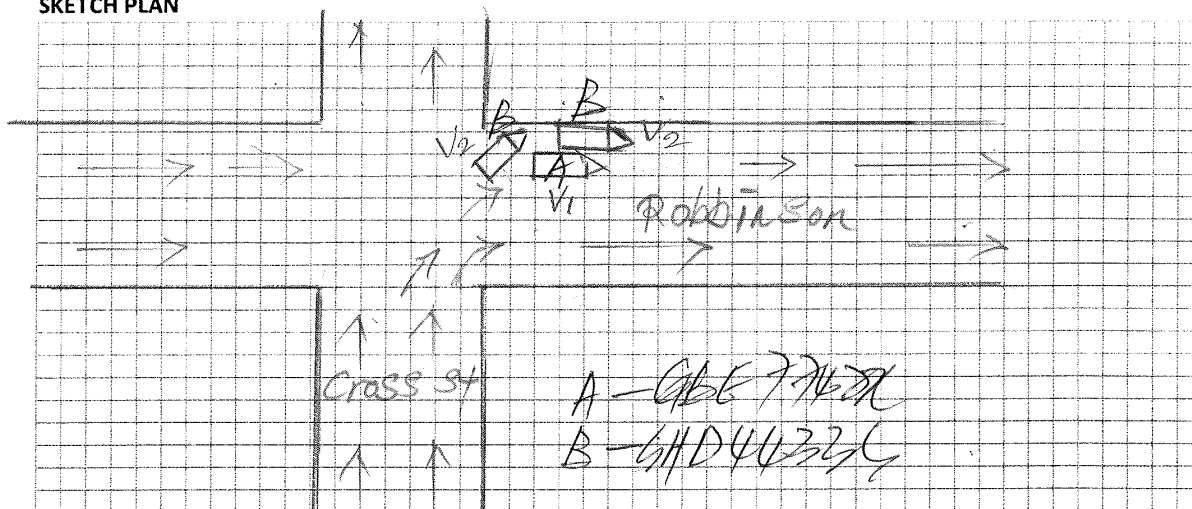 SKETCH PLAN
B
B
V2
V2
A
V1
Robbinson
Cross St
A -
B - SHD4433S